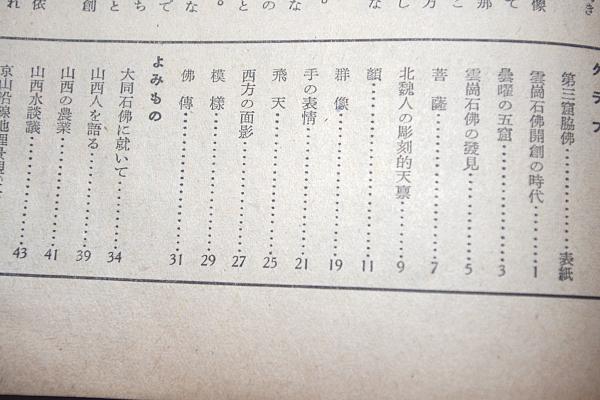 グラフ
第三窟脇佛…………表紙
雲崗石佛開創の時代…………1
曇曜の五窟…………3
雲崗石佛の發見…………5
菩薩…………7
北魏人の彫刻的天禀…………9
顏…………11
群像…………19
手の表情…………21
飛天…………25
西方の面影…………27
模樣…………29
佛傳…………31
よみもの
大同石佛に就いて…………34
山西人を語る…………39
山西の農業…………41
山西水談議…………43
京山沿線地理景觀